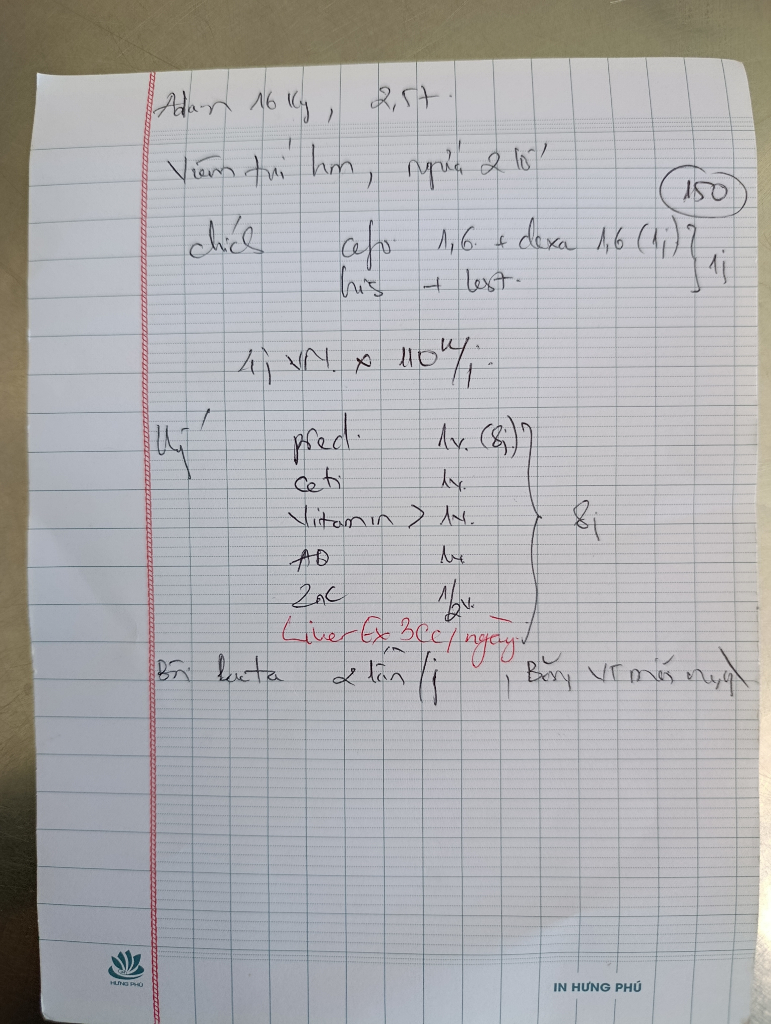 Adam 16 Kg, 2,5t.
Viêm túi hm, ngứa 2
150
chích cefo 1,6 + dexa 1,6 (1j) 1j
his + lest.
4j VN. x 110k/j.
pred. 1v. (8j)
ceti 1v.
Vitamin 1v.
AD 1v
ZnC 1/2v.
8j
Liver Ex 3cc/ngày.
2 lần/j, VT mỗi ngày
HƯNG PHÚ
IN HƯNG PHÚ